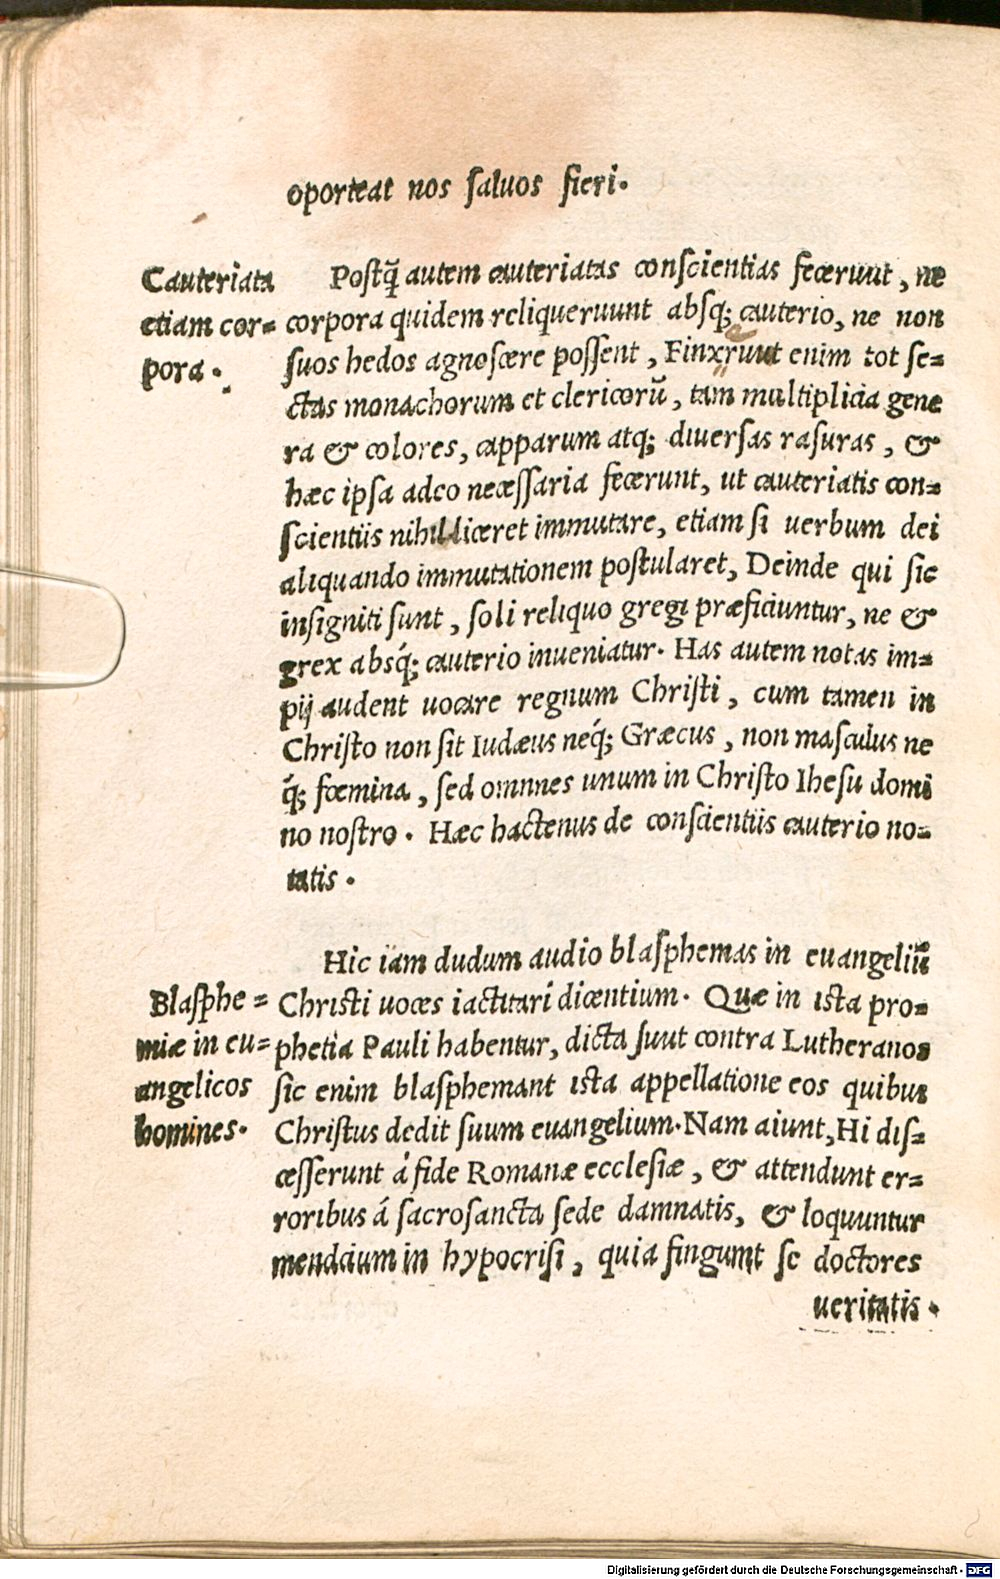 oporteat nos ſaluos fieri.
Cauteriata
etiam cor=
pora.
Poſtq̃ autem cauteriatas conſcientias fecerunt, ne
corpora quidem reliquerunt abſq; cauterio, ne non
ſuos hedos agnoſcere poſſent, Finxerunt enim tot ſe=
ctas monachorum et clericorũ, tam multiplicia gene
ra & colores, capparum atq; diuerſas raſuras, &
hæc ipſa adeo neceſſaria fecerunt, ut cauteriatis con=
ſcientiis nihil liceret immutare, etiam ſi uerbum dei
aliquando immutationem poſtularet, Deinde qui ſic
inſigniti ſunt, ſoli reliquo gregi præficiuntur, ne &
grex abſq́; cauterio inueniatur. Has autem notas im=
pij audent uocare regnum Chriſti, cum tamen in
Chriſto non ſit Iudæus neq́; Græcus, non maſculus ne
q́; fœmina, ſed omnnes unum in Chriſto Iheſu domi
no noſtro. Hæc hactenus de conſcientiis cauterio no=
tatis.
Blaſphe=
miæ in eu=
angelicos
homines.
Hic iam dudum audio blaſphemas in euangeliũ
Chriſti uoces iactitari dicentium. Quæ in iſta pro=
phetia Pauli habentur, dicta ſunt contra Lutheranos
ſic enim blaſphemant iſta appellatione eos quibus
Chriſtus dedit ſuum euangelium. Nam aiunt, Hi diſ=
ceſſerunt á fide Romanæ eccleſiæ, & attendunt er=
roribus á ſacroſancta ſede damnatis, & loquuntur
mendacium in hypocriſi, quia fingunt ſe doctores
ueritatis.
Digitalisierung gefördert durch die Deutsche Forschungsgemeinschaft - DFG